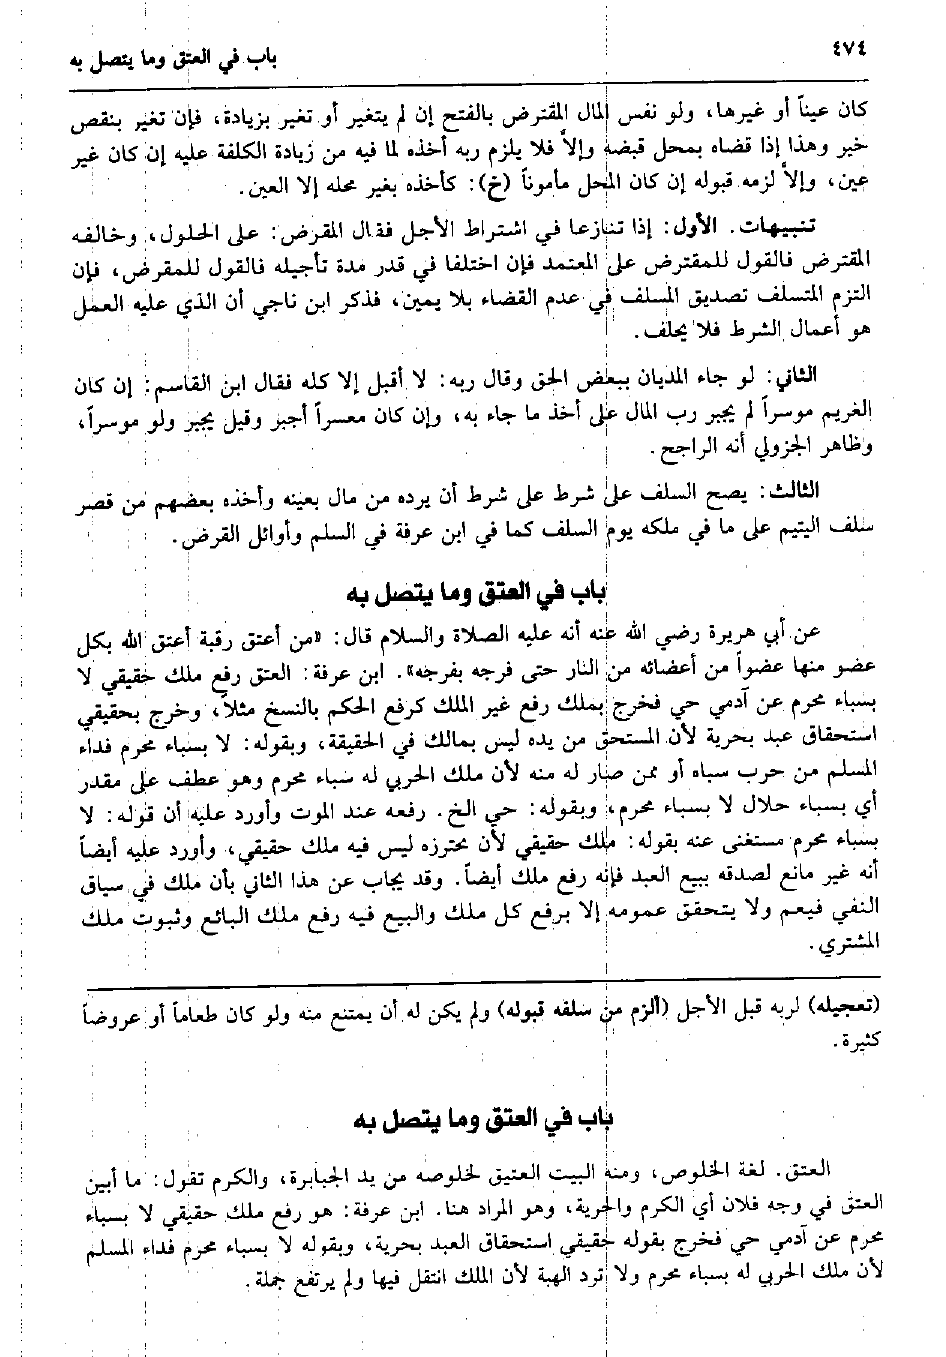 ٤٧٤
باب في العتق وما يتصل به
كان عيناً أو غيرها، ولو نفس المال المقترض بالفتح إن لم يتغير أو تغير بزيادة، فإن تغير بنقص
خير وهذا إذا قضاه بمحل قبضه وإلاّ فلا يلزم ربه أخذه لما فيه من زيادة الكلفة عليه إن كان غير
عين، وإلاّ لزمه قبوله إن كان المحل مأموناً (خ): كأخذه بغير محله إلا العين.
تنبيهات. الأول: إذا تنازعا في اشتراط الأجل فقال المقرض: على الحلول، وخالفه
المقترض فالقول للمقترض على المعتمد فإن اختلفا في قدر مدة تأجيله فالقول للمقرض، فإن
التزم المتسلف تصديق المسلف في عدم القضاء بلا يمين، فذكر ابن ناجي أن الذي عليه العمل
هو أعمال الشرط فلا يحلف.
الثاني: لو جاء المديان ببعض الحق وقال ربه: لا أقبل إلا كله فقال ابن القاسم: إن كان
الغريم موسراً لم يجبر رب المال على أخذ ما جاء به، وإن كان معسراً أجبر وقيل يجبر ولو موسراً،
وظاهر الجزولي أنه الراجح.
الثالث: يصح السلف على شرط على شرط أن يرده من مال بعينه وأخذه بعضهم من قصر
سلف اليتيم على ما في ملكه يوم السلف كما في ابن عرفة في السلم وأوائل القرض.
باب في العتق وما يتصل به
عن أبي هريرة رضي الله عنه أنه عليه الصلاة والسلام قال: «من أعتق رقبة أعتق الله بكل
عضو منها عضواً من أعضائه من النار حتى فرجه بفرجه». ابن عرفة: العتق رفع ملك حقيقي لا
بسباء محرم عن آدمي حي فخرج بملك رفع غير الملك كرفع الحكم بالنسخ مثلاً، وخرج بحقيقي
استحقاق عبد بحرية لأن المستحق من يده ليس بمالك في الحقيقة، وبقوله: لا بسباء محرم فداء
المسلم من حرب سباه أو ممن صار له منه لأن ملك الحربي له سباء محرم وهو عطف على مقدر
أي بسباء حلال لا بسباء محرم، وبقوله: حي الخ. رفعه عند الموت وأورد عليه أن قوله: لا
بسباء محرم مستغنى عنه بقوله: ملك حقيقي لأن محترزه ليس فيه ملك حقيقي، وأورد عليه أيضاً
أنه غير مانع لصدقه ببيع العبد فإنه رفع ملك أيضاً. وقد يجاب عن هذا الثاني بأن ملك في سياق
النفي فيعم ولا يتحقق عمومه إلا برفع كل ملك والبيع فيه رفع ملك البائع وثبوت ملك
المشتري.
(تعجيله) لربه قبل الأجل (ألزم من سلفه قبوله) ولم يكن له أن يمتنع منه ولو كان طعاماً أو عروضاً
كثيرة.
باب في العتق وما يتصل به
العتق. لغة الخلوص، ومنه البيت العتيق لخلوصه من يد الجبابرة، والكرم تقول: ما أبين
العتق في وجه فلان أي الكرم والحرية، وهو المراد هنا. ابن عرفة: هو رفع ملك حقيقي لا بسباء
محرم عن آدمي حي فخرج بقوله حقيقي استحقاق العبد بحرية، وبقوله لا بسباء محرم فداء المسلم
لأن ملك الحربي له بسباء محرم ولا ترد الهبة لأن الملك انتقل فيها ولم يرتفع جملة.